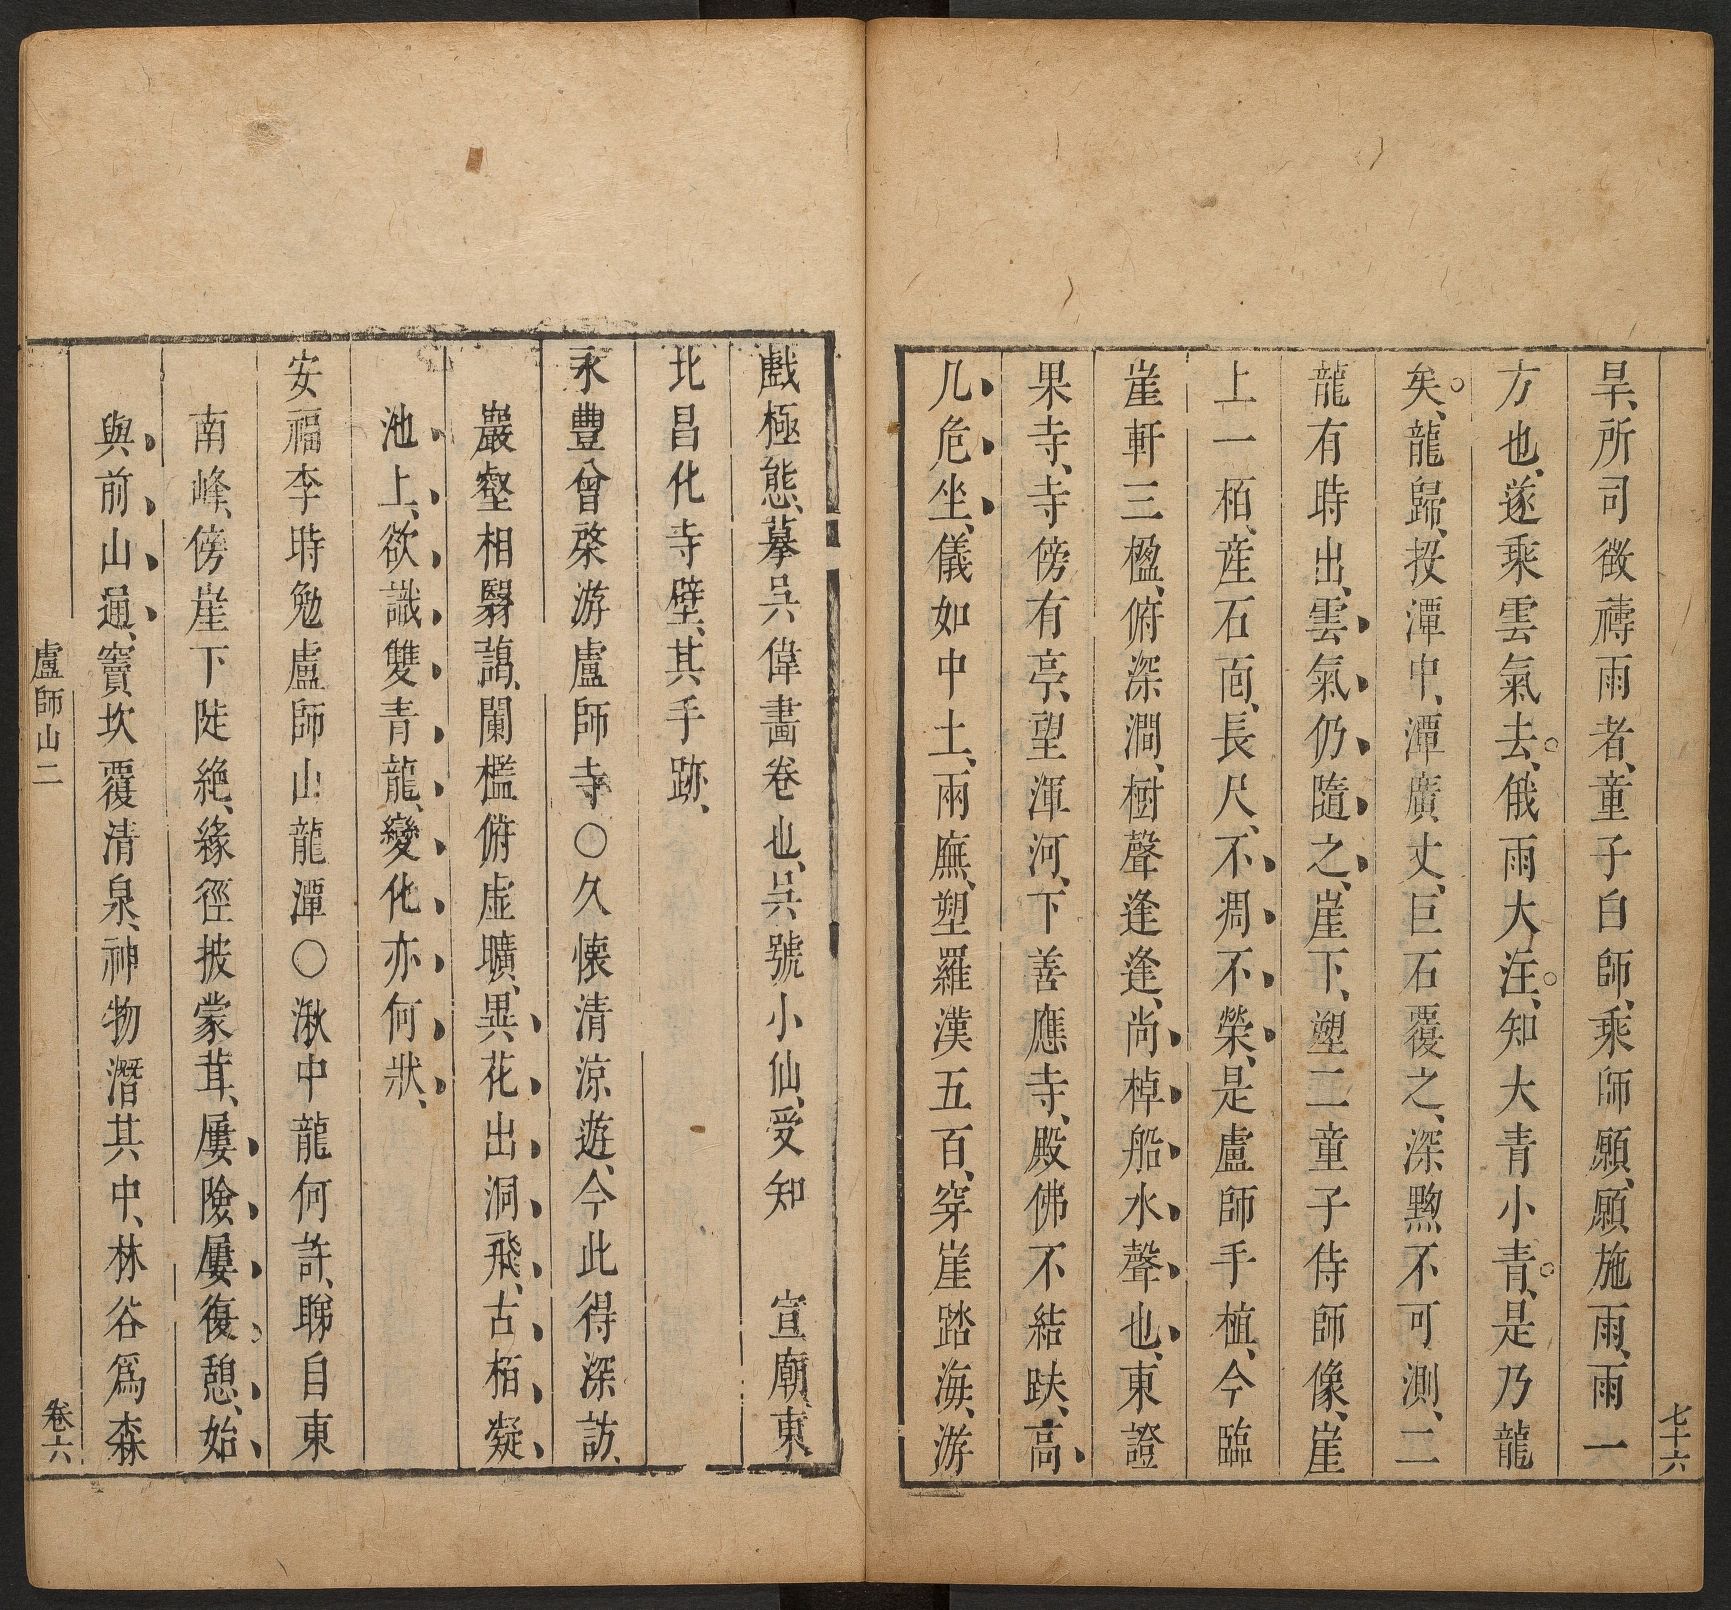 七十六
旱、所司徵禱雨者、童子白師、乘師願、願施雨、雨一
方也、遂乘雲氣去、俄雨大注、知大青小青、是乃龍
矣、龍歸、投潭中、潭廣丈、巨石覆之、深黝不可測、二
龍有時出、雲氣仍隨之、崖下、塑二童子侍師像、崖
上一栢、產石面、長尺、不凋不榮、是盧師手植、今臨
崖軒三楹、俯深澗、樹聲逢逢、尚棹船水聲也、東證
果寺、寺傍有亭、望渾河、下善應寺、殿佛不結趺、高
几危坐、儀如中土、兩廡、塑羅漢五百、穿崖踏海、游
戲極態、摹吳偉畫卷也、吳號小仙、受知　宣廟、東
北昌化寺壁、其手跡、
永豐曾棨游盧師寺○久懷清涼遊、今此得深訪、
巖壑相翳藹、闌檻俯虛曠、異花出洞飛、古栢凝
池上、欲識雙青龍、變化亦何狀、
安福李時勉盧師山龍潭○湫中龍何許、聯自東
南峰、傍崖下陡絶、緣徑披蒙茸、屢險屢復憩、始
與前山通、竇坎覆清泉、神物潛其中、林谷爲森
盧師山二
卷六